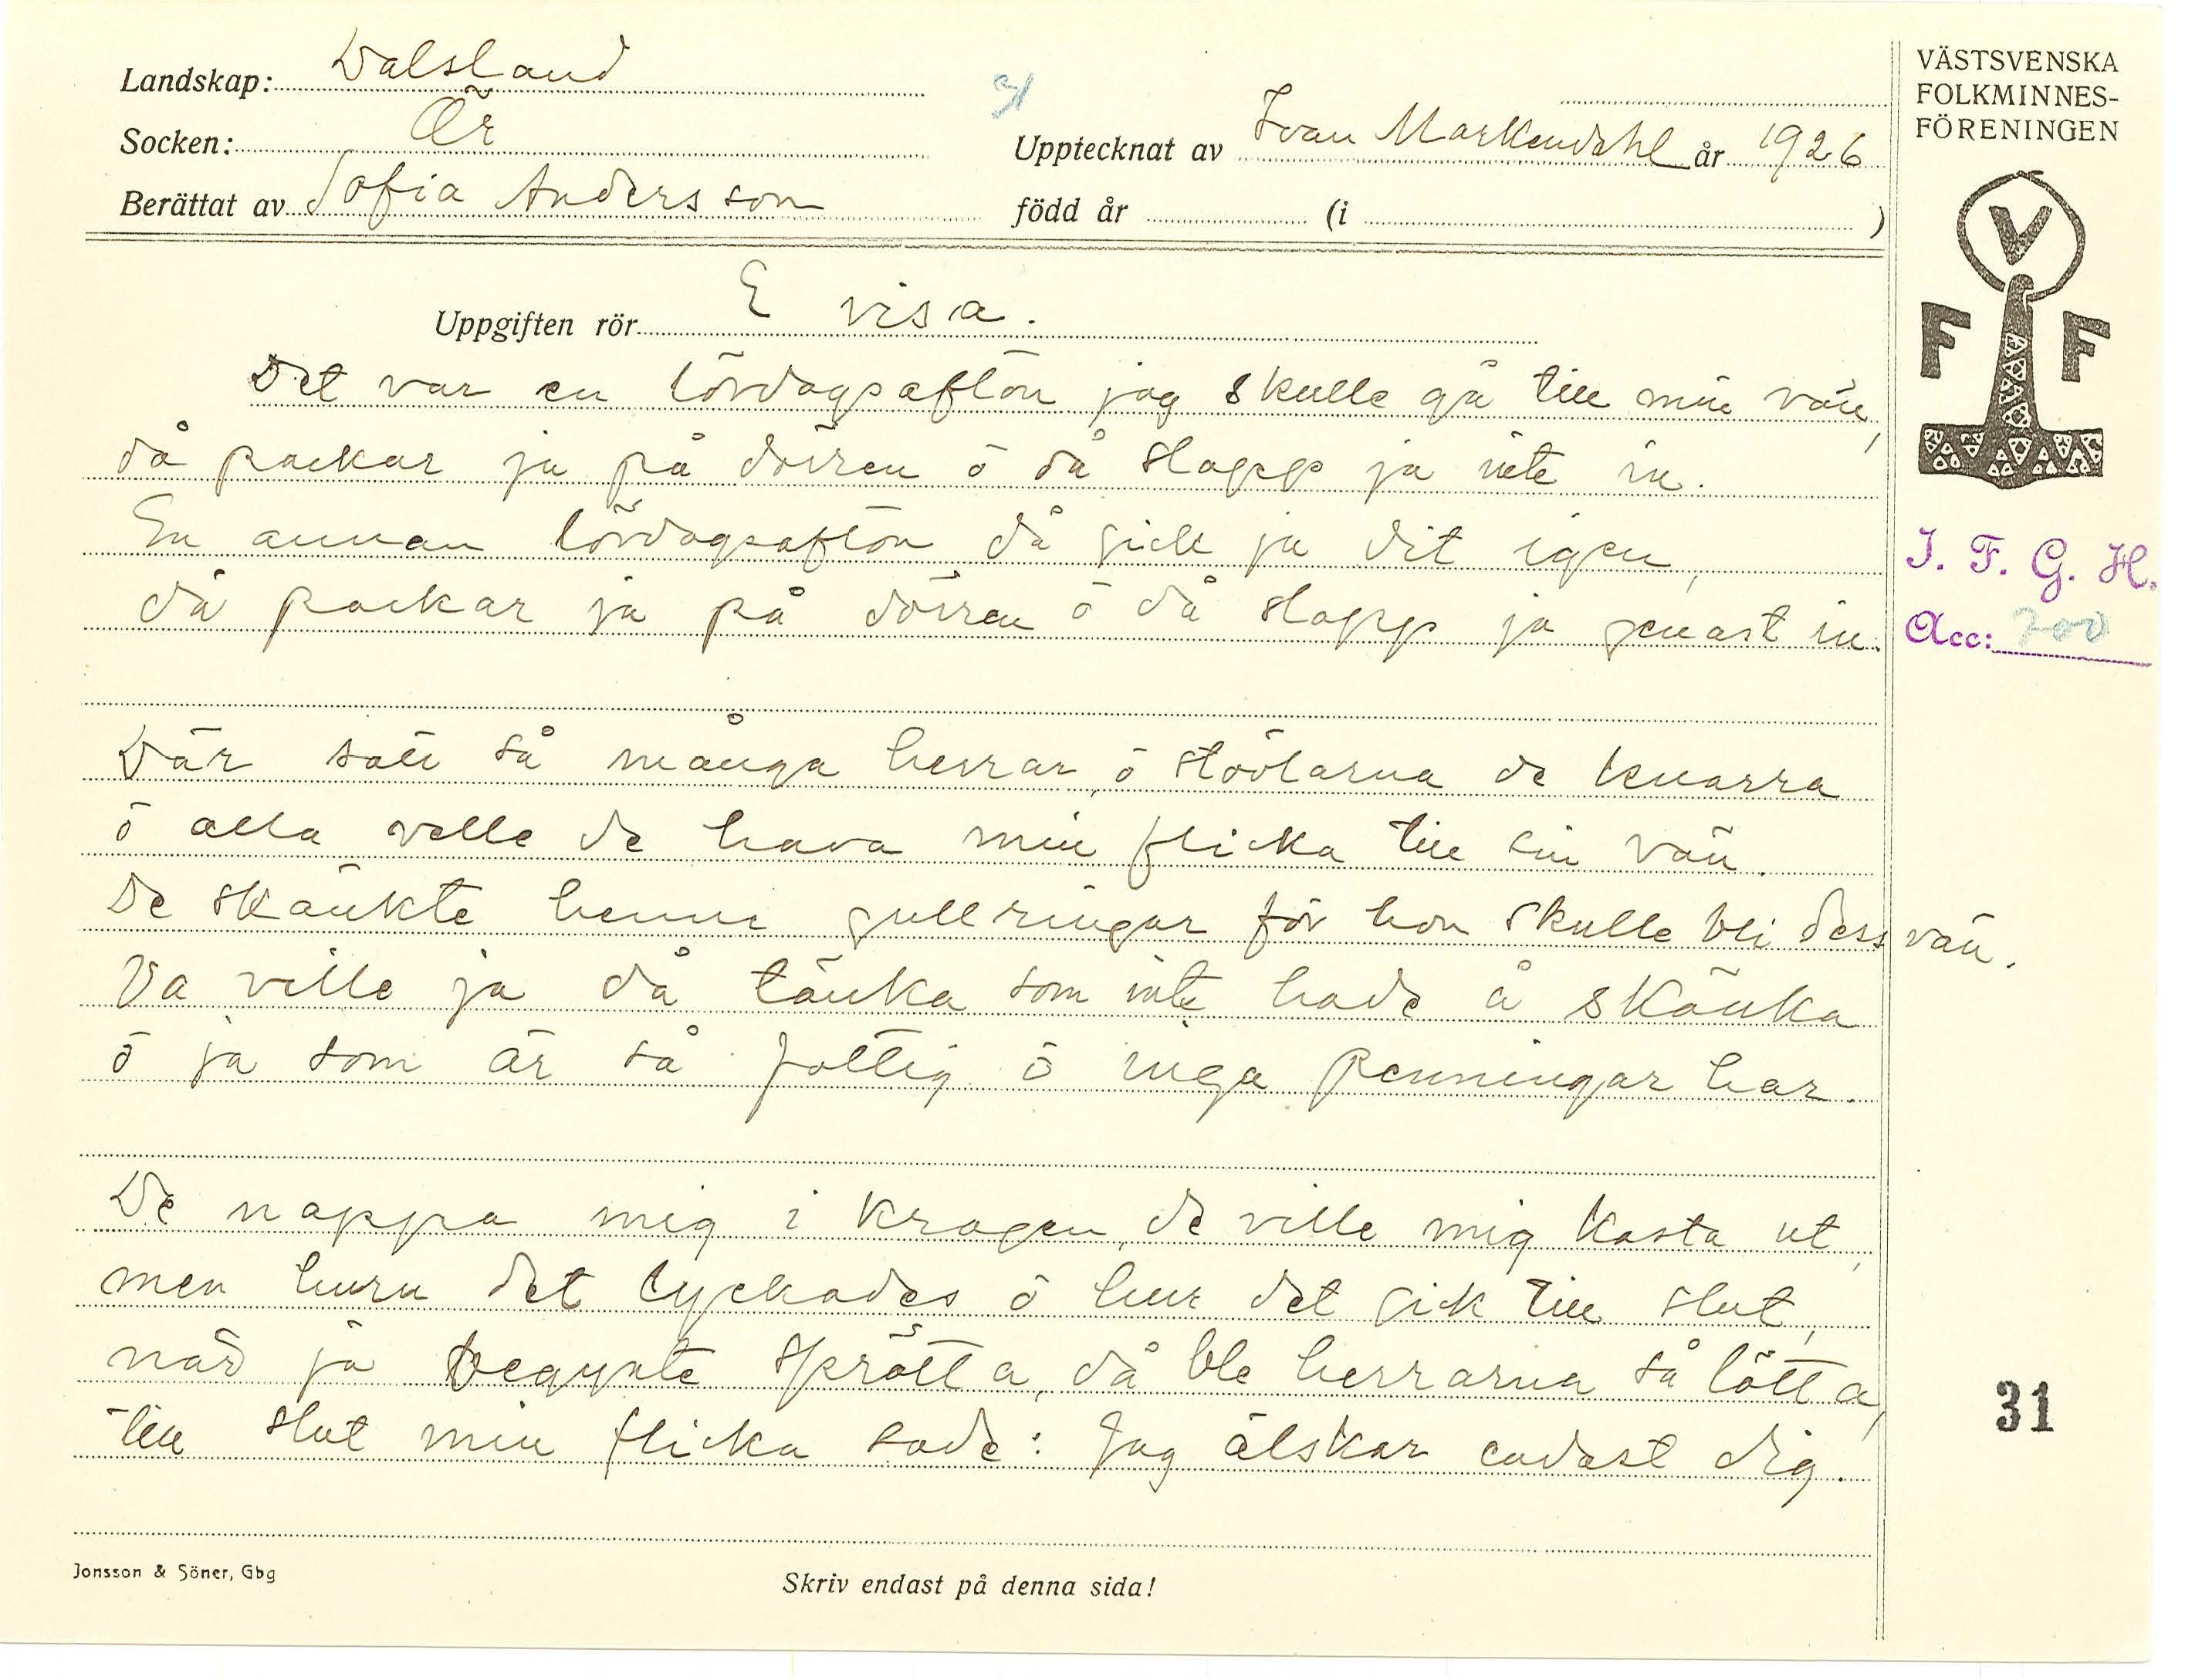 Landskap: Dalsland
Socken: Ör
Berättat av Sofia Andersson
Upptecknat av Ivan Markendahl år 1926
född år (i )
VÄSTSVENSKA
FOLKMINNES-
FÖRENINGEN
V
F F
I. F. G. H.
Acc: 700
Uppgiften rör E visa.
Det var en lördagsafton jag skulle gå till min vän,
då packar ja på dörren ö då slapp ja inte in.
En annan lördagsafton då gick ja dit igen,
då packar ja på dörren ö då slapp ja genast in.
Där satt så många herrar, ö stövlarna de knarra
ö alla velle de hava min flicka till sin vän.
De skänkte henne gullringar för hon skulle bli dess vän.
Va ville ja då tänka som inte hade å skänka
ö ja som är så fattig ö inga penningar har.
De nappa mig i kragen, de ville mig kasta ut,
men huru det lyckades ö hur det gick till slut,
när ja begynte sprätta, då ble herrarna så lätta,
till slut min flicka sade: Jag älskar endast dig.
31
Jonsson & Söner, Gbg
Skriv endast på denna sida!